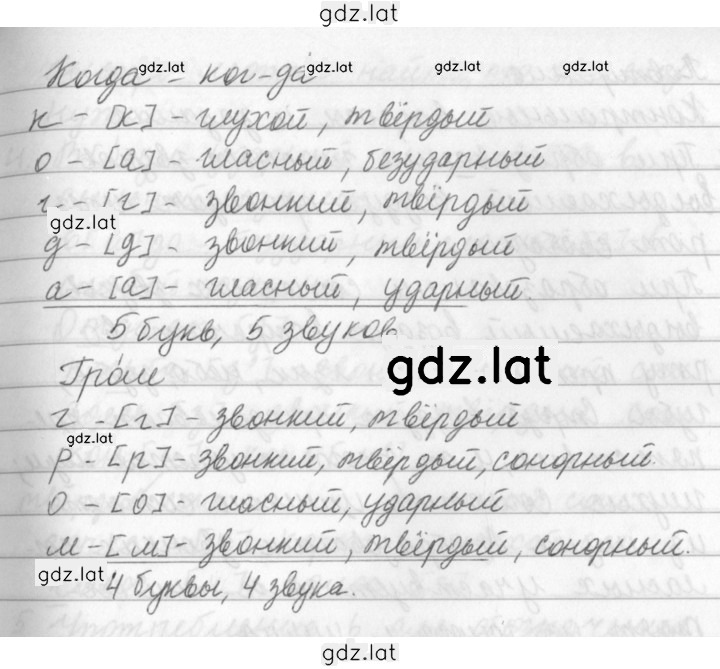 gdz.lat
Когда - ког-да́
gdz.lat gdz.lat gdz.lat gdz.lat
к - [к] - глухой, твёрдый
о - [а] - гласный, безударный
г - [г] - звонкий, твёрдый
gdz.lat
д - [д] - звонкий, твёрдый
а - [а] - гласный, ударный.
5 букв, 5 звуков
gdz.lat
Гром
г - [г] - звонкий, твёрдый
gdz.lat
р - [р] - звонкий, твёрдый, сонорный.
о - [о] - гласный, ударный
м - [м] - звонкий, твёрдый, сонорный.
gdz.lat
4 буквы, 4 звука.
gdz.lat